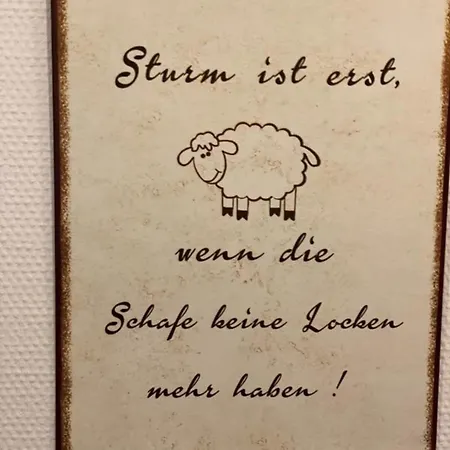 Sturm ist erst,
wenn die
Schafe keine Locken
mehr haben !